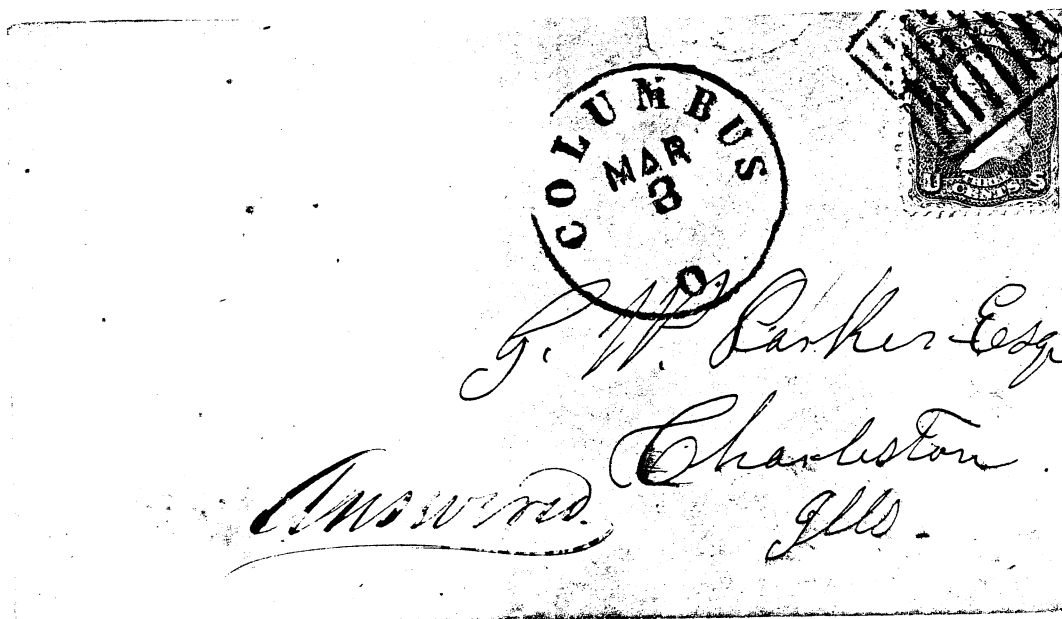 COLUMBUS
MAR
3
O.
U THREE S
CENTS
G. W. Parker Esq
Charleston.
Ills.
Answered.